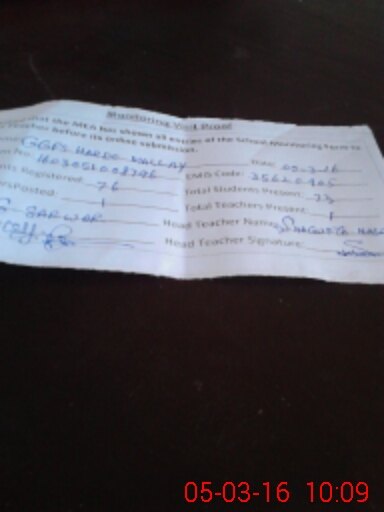 Monitoring Visit Proof
that the MEA has shown all entries of the School Monitoring Form to
Teacher before its online submission.
GGPS HARDO WALLAY Date: 05-3-16
No: 1603051008796 EMIS Code: 35620405
Registered: 76 Total Students Present: 73
Posted: 1 Total Teachers Present: 1
SARWAR Head Teacher Name:
Head Teacher Signature:
05-03-16 10:09